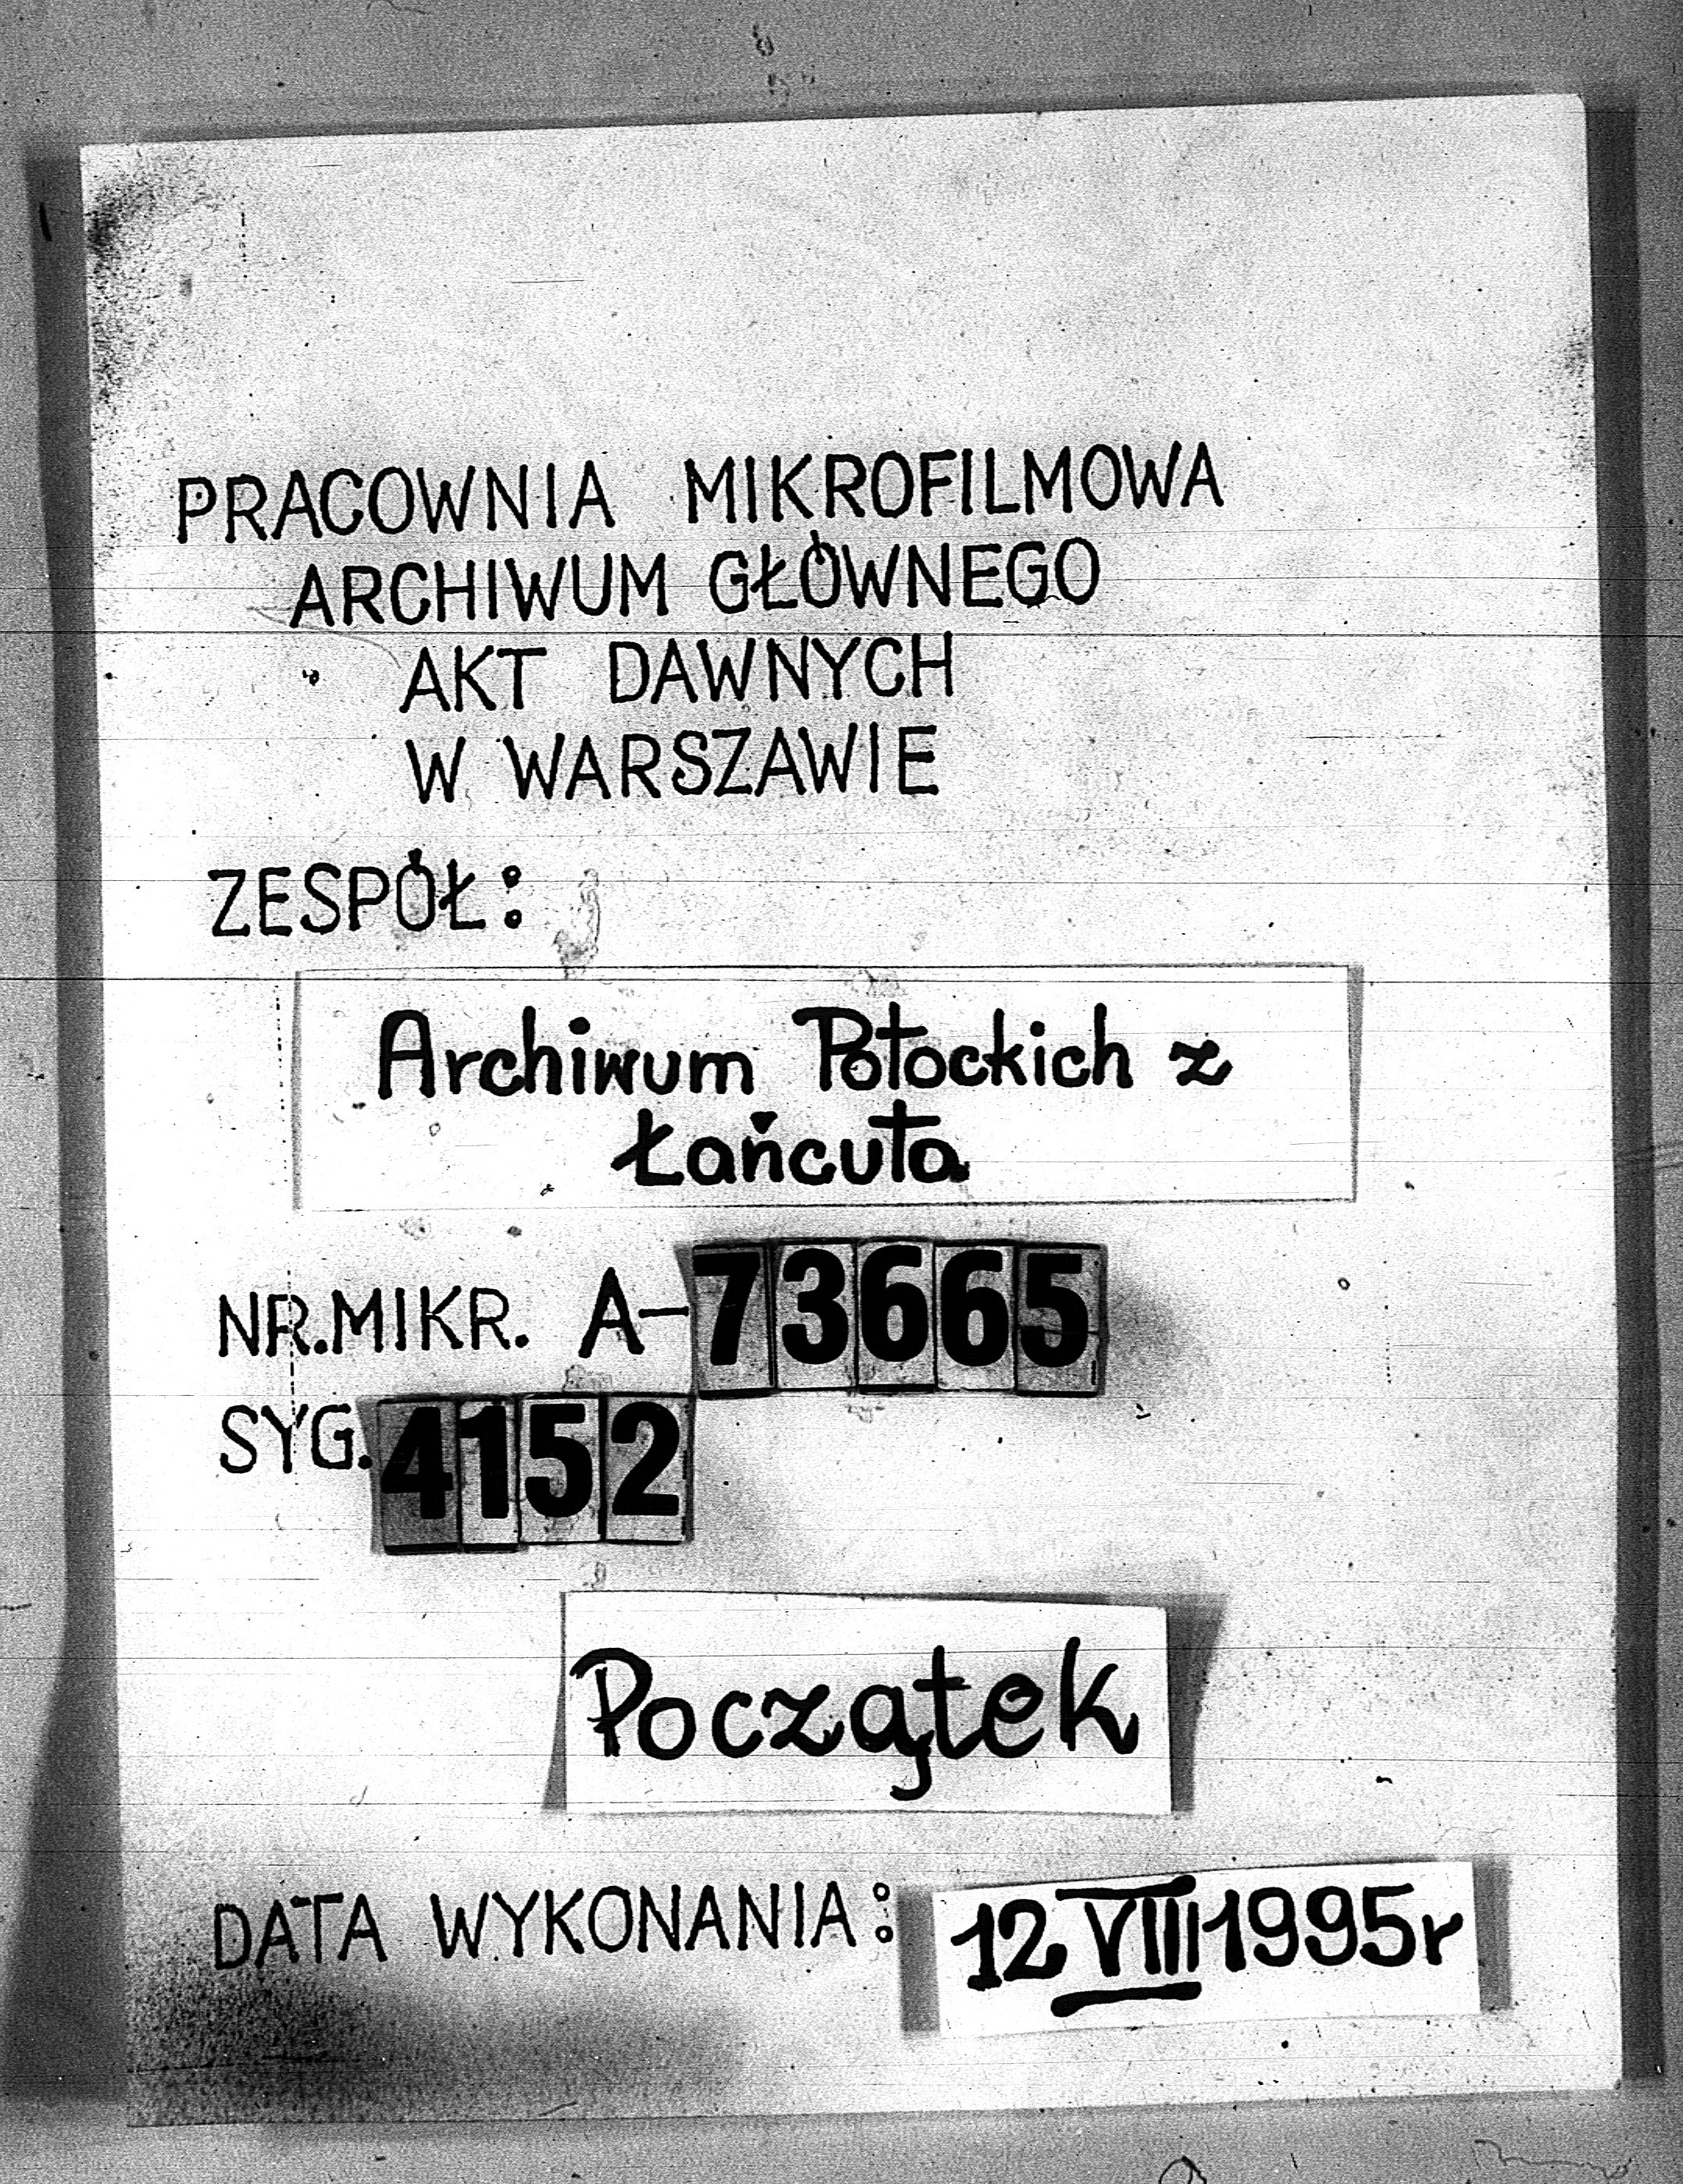 PRACOWNIA MIKROFILMOWA
ARCHIWUM GŁÓWNEGO
AKT DAWNYCH
W WARSZAWIE
ZESPÓŁ:
Archiwum Potockich z
Łańcuta
NR.MIKR. A-73665
SYG. 4152
Początek
DATA WYKONANIA: 12 VIII 1995r